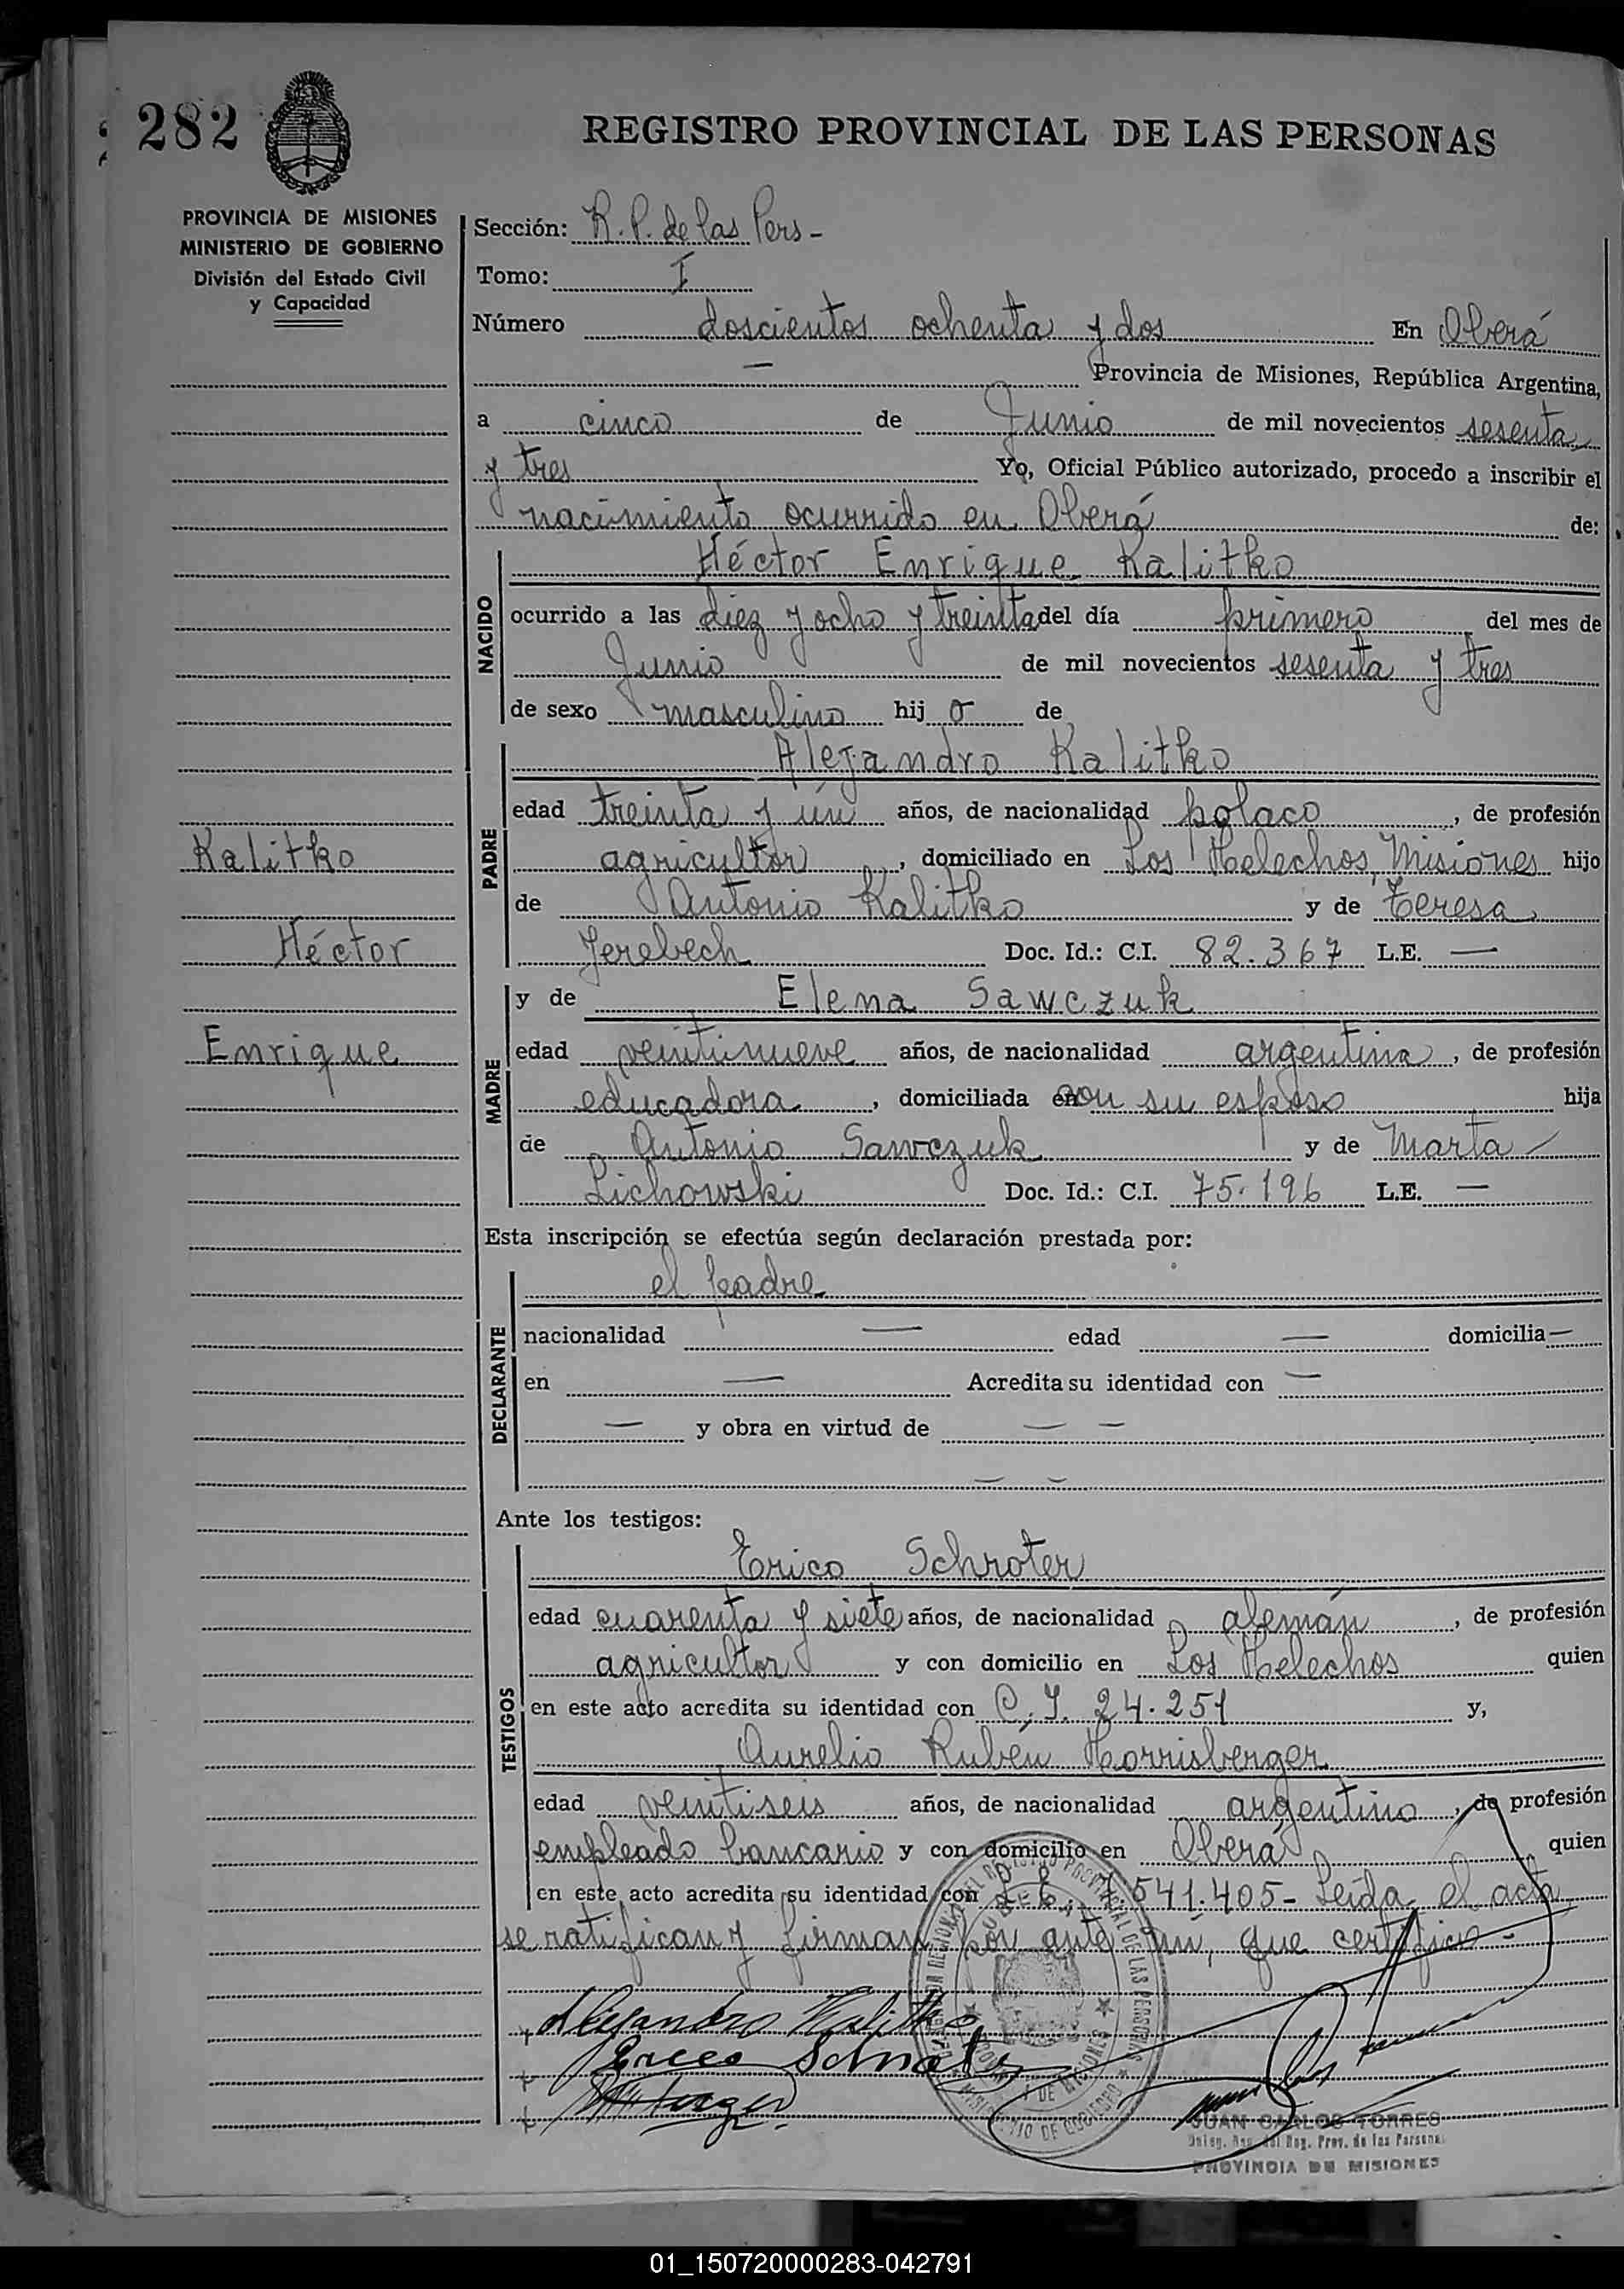 282
REGISTRO PROVINCIAL DE LAS PERSONAS
PROVINCIA DE MISIONES
MINISTERIO DE GOBIERNO
División del Estado Civil
y Capacidad
Kalitko
Héctor
Enrique
Sección: R. P. de las Pers -
Tomo: I
Número doscientos ochenta y dos En Oberá
— Provincia de Misiones, República Argentina,
a cinco de Junio de mil novecientos sesenta
y tres Yo, Oficial Público autorizado, procedo a inscribir el
nacimiento ocurrido en Oberá de:
NACIDO
Héctor Enrique Kalitko
ocurrido a las diez y ocho y treinta del día primero del mes de
Junio de mil novecientos sesenta y tres
de sexo masculino hij o de
PADRE
Alejandro Kalitko
edad treinta y un años, de nacionalidad polaco, de profesión
agricultor, domiciliado en Los Helechos, Misiones hijo
de Antonio Kalitko y de Teresa
Jerebech Doc. Id.: C.I. 82.367 L.E. —
MADRE
y de Elena Sawczuk
edad veintinueve años, de nacionalidad argentina, de profesión
educadora, domiciliada con su esposo hija
de Antonio Sawczuk y de Marta
Lichowski Doc. Id.: C.I. 75.196 L.E. —
Esta inscripción se efectúa según declaración prestada por:
DECLARANTE
el padre
nacionalidad — edad — domicilia —
en — Acredita su identidad con —
— y obra en virtud de — —
— —
Ante los testigos:
TESTIGOS
Erico Schroter
edad cuarenta y siete años, de nacionalidad alemán, de profesión
agricultor y con domicilio en Los Helechos quien
en este acto acredita su identidad con C. I. 24.251 y,
Aurelio Rubén Horrisberger
edad veintiseis años, de nacionalidad argentino, de profesión
empleado bancario y con domicilio en Oberá quien
en este acto acredita su identidad con 541.405 - Leída el acta,
se ratifican y firman por ante mí, que certifico -
Alejandro Kalitko
JUAN CARLOS TORRES
PROVINCIA DE MISIONES
01_150720000283-042791